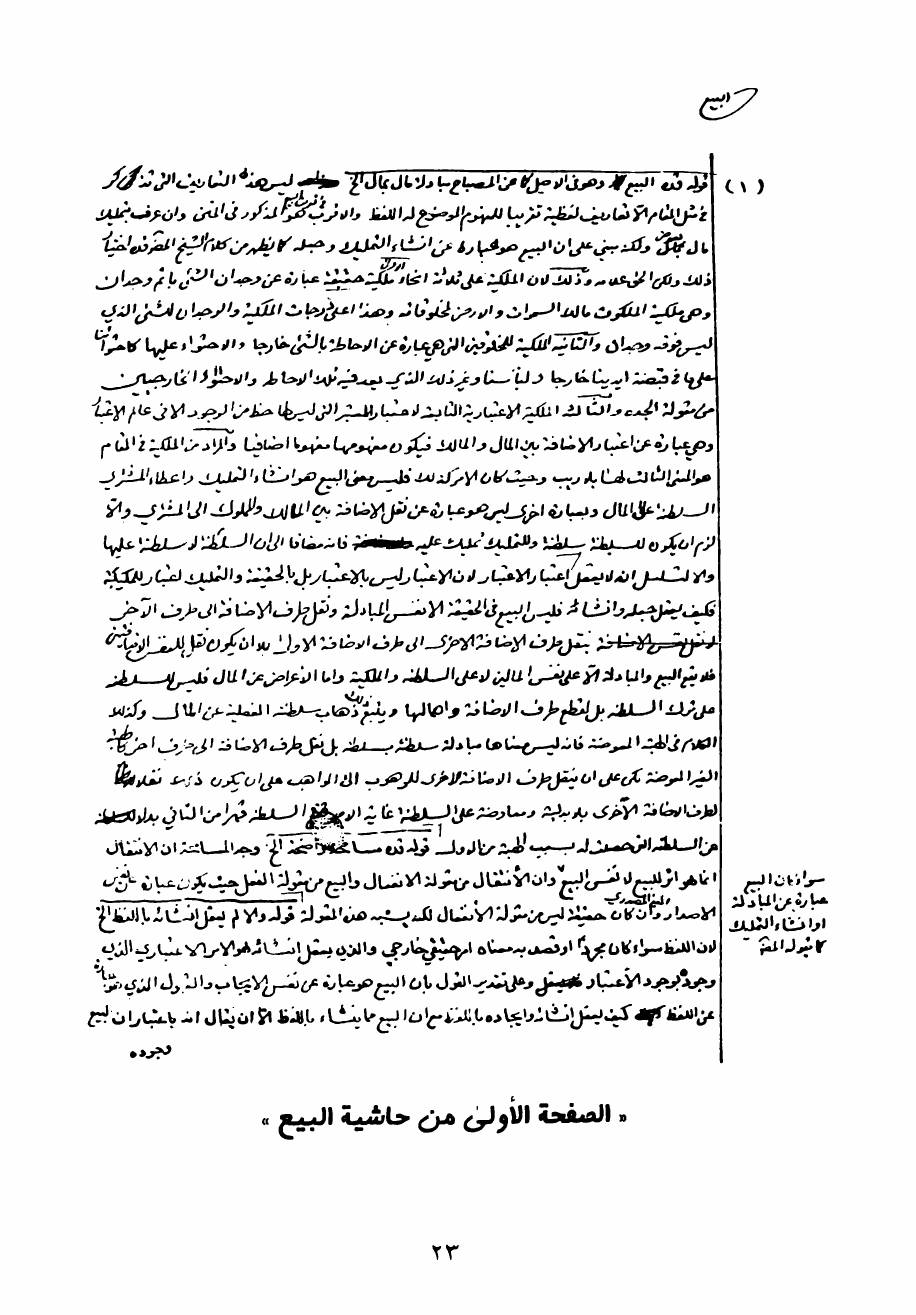 البيع
(١) قوله قده البيع وهو في الاصل كما عن المصباح مبادلة مال بمال الخ ليس هذه التعاريف التي تذكر
في مثل المقام الا تعاريف لفظية تقريبا للمفهوم الموضوع له اللفظ والاقرب المذكور في المتن وان عرف بتمليك
مال ولكنه يبني على ان البيع هو عبارة عن انشاء التمليك وجعله كما يظهر من كلام الشيخ المصنف قده اختيار
ذلك ولكن الحق عدمه وذلك لان الملكية على ثلاثة انحاء الاول ملكية حقيقية عبارة عن وجدان الشئ باتم وجدان
وهي ملكية الملكوت مالك السموات والارض لمخلوقاته وهذا اعلى درجات الملكية والوجدان للشئ الذي
ليس فوقه وجدان والثانية الملكية للمخلوقين التي هي عبارة عن الاحاطة بالشئ خارجا والاحتواء عليها
على ما في قبضة ايدينا خارجا ولباسنا وغير ذلك الذي يعد فيه تلك الاحاطة والاحتواء الخارجيين
من مقولة الجده والثالث الملكية الاعتبارية الثابتة لاعتبار المعتبر التي ليس لها حظ من الوجود الا في عالم الاعتبار
وهي عبارة عن اعتبار الاضافة بين المال والمالك فيكون مفهومها مفهوما اضافيا والمراد من الملكية في المقام
هو المعنى الثالث لهنا بلا ريب وحيث كان الامر كذلك فليس معنى البيع هو انشاء التمليك واعطاء المشتري
السلطنة على المال وبعبارة اخرى ليس هو عبارة عن نقل الاضافة بين المالك والمملوك الى المشتري والا
لزم ان يكون للسلطنة سلطنة وللتمليك تمليك عليه فانه مضافا الى ان السلطنة لا سلطنة عليها
والا لتسلسل انه لا يعقل اعتبار الاعتبار لان الاعتبار ليس بالاعتبار بل بالحقيقة والتمليك اعتبار للملكية
فكيف يعقل جعله وانشائه فليس البيع في الحقيقة الا نفس المبادلة ونقل طرف الاضافة الى طرف الآخر
ينقل طرف الاضافة الاخرى الى طرف الاضافة الاولى بلا ان يكون نقل لنفس الاضافتين
فلا يقع البيع والمبادلة الا على نفس المالين لا على السلطنة والملكية واما الاعراض عن المال فليس للسلطنة
على ترك السلطنة بل لقطع طرف الاضافة واهمالها ويتبع ذلك ذهاب سلطنة الفعلية عن المال وكذلك
الكلام في الهبة المعوضة فانه ليس معناها مبادلة سلطنة بسلطنة بل نقل طرف الاضافة الى طرف آخر كالهبة
الغير المعوضة لكن على ان ينقل طرف الاضافة الاخرى للموهوب الى الواهب على ان يكون ذلك نقلا
لطرف الاضافة الاخرى بلا بدلية ومعاوضة على السلطنة غاية الامر السلطنة قهرا من الثاني بدلا
عن السلطنة التي حصلت له بسبب الهبة من الاول قوله قده مسامحة واضحة الخ وجه المسامحة ان الانتقال
انما هو اثر للبيع لا نفس البيع وان الانتقال من مقولة الانفعال والبيع من مقولة الفعل حيث يكون عبارة عن نفس
الاصدار وان كان حقيقة ليس من مقولة الانتقال لكنه يشبه هذه المقولة قوله والا لم يعقل انشائه باللفظ الخ
لان اللفظ سواء كان مجردا او قصد به معناه امر حقيقي خارجي والذي يعقل انشائه هو الامر الاعتباري الذي
وجوده بوجود الاعتبار وعلى تقدير القول بان البيع هو عبارة عن نفس الايجاب والقبول الذي
عن اللفظ كيف يعقل انشائه وايجاده باللفظ مع ان البيع مما ينشاء باللفظ الا ان يقال انه باعتبار ان البيع
وجوده
سواء كان البيع
عبارة عن المبادلة
او انشاء التمليك
كما يقوله المصنف
« الصفحة الأولىٰ من حاشية البيع »
٢٣